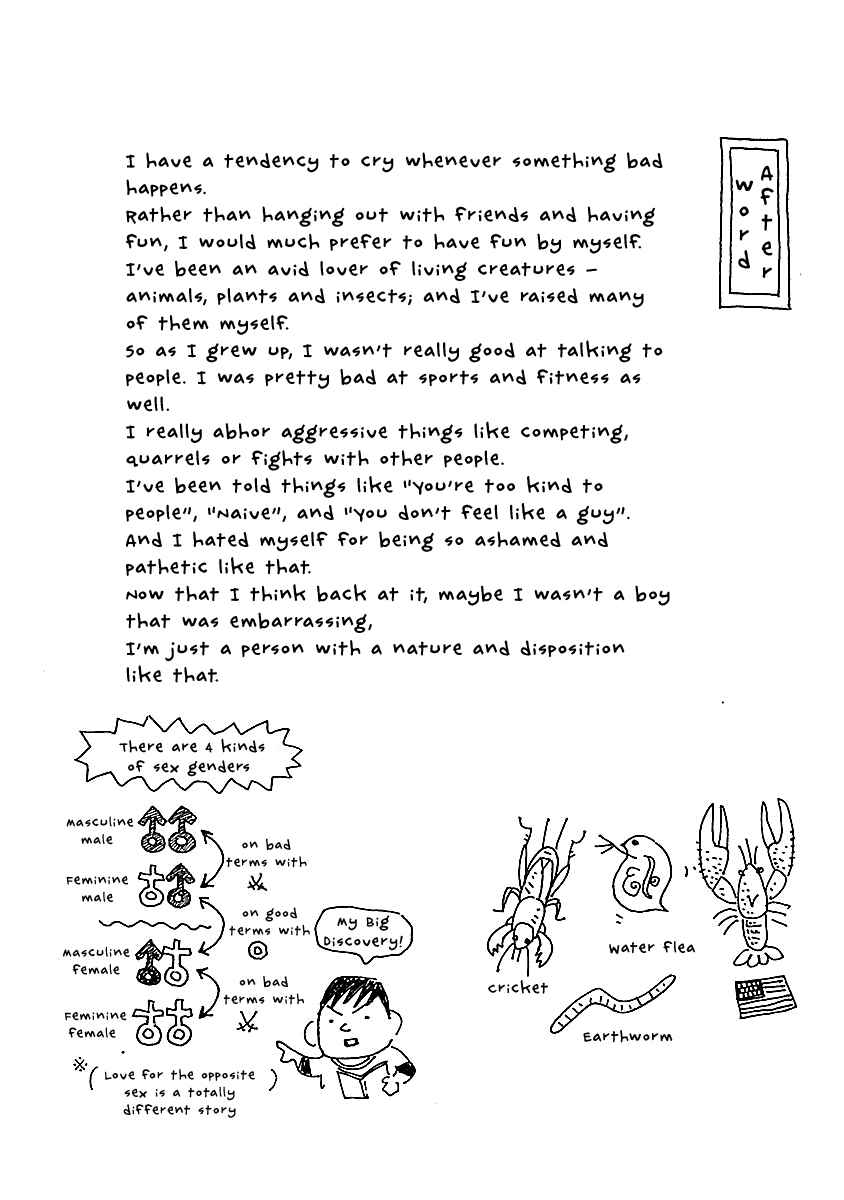 After
word
I have a tendency to cry whenever something bad
happens.
Rather than hanging out with friends and having
fun, I would much prefer to have fun by myself.
I've been an avid lover of living creatures –
animals, plants and insects; and I've raised many
of them myself.
So as I grew up, I wasn't really good at talking to
people. I was pretty bad at sports and fitness as
well.
I really abhor aggressive things like competing,
quarrels or fights with other people.
I've been told things like "You're too kind to
people", "Naive", and "You don't feel like a guy".
And I hated myself for being so ashamed and
pathetic like that.
Now that I think back at it, maybe I wasn't a boy
that was embarrassing,
I'm just a person with a nature and disposition
like that.
There are 4 kinds
of sex genders
Masculine
male
on bad
terms with
Feminine
male
on good
terms with
My Big
Discovery!
Masculine
female
on bad
terms with
Feminine
female
※
(Love for the opposite
sex is a totally
different story)
cricket
water flea
Earthworm